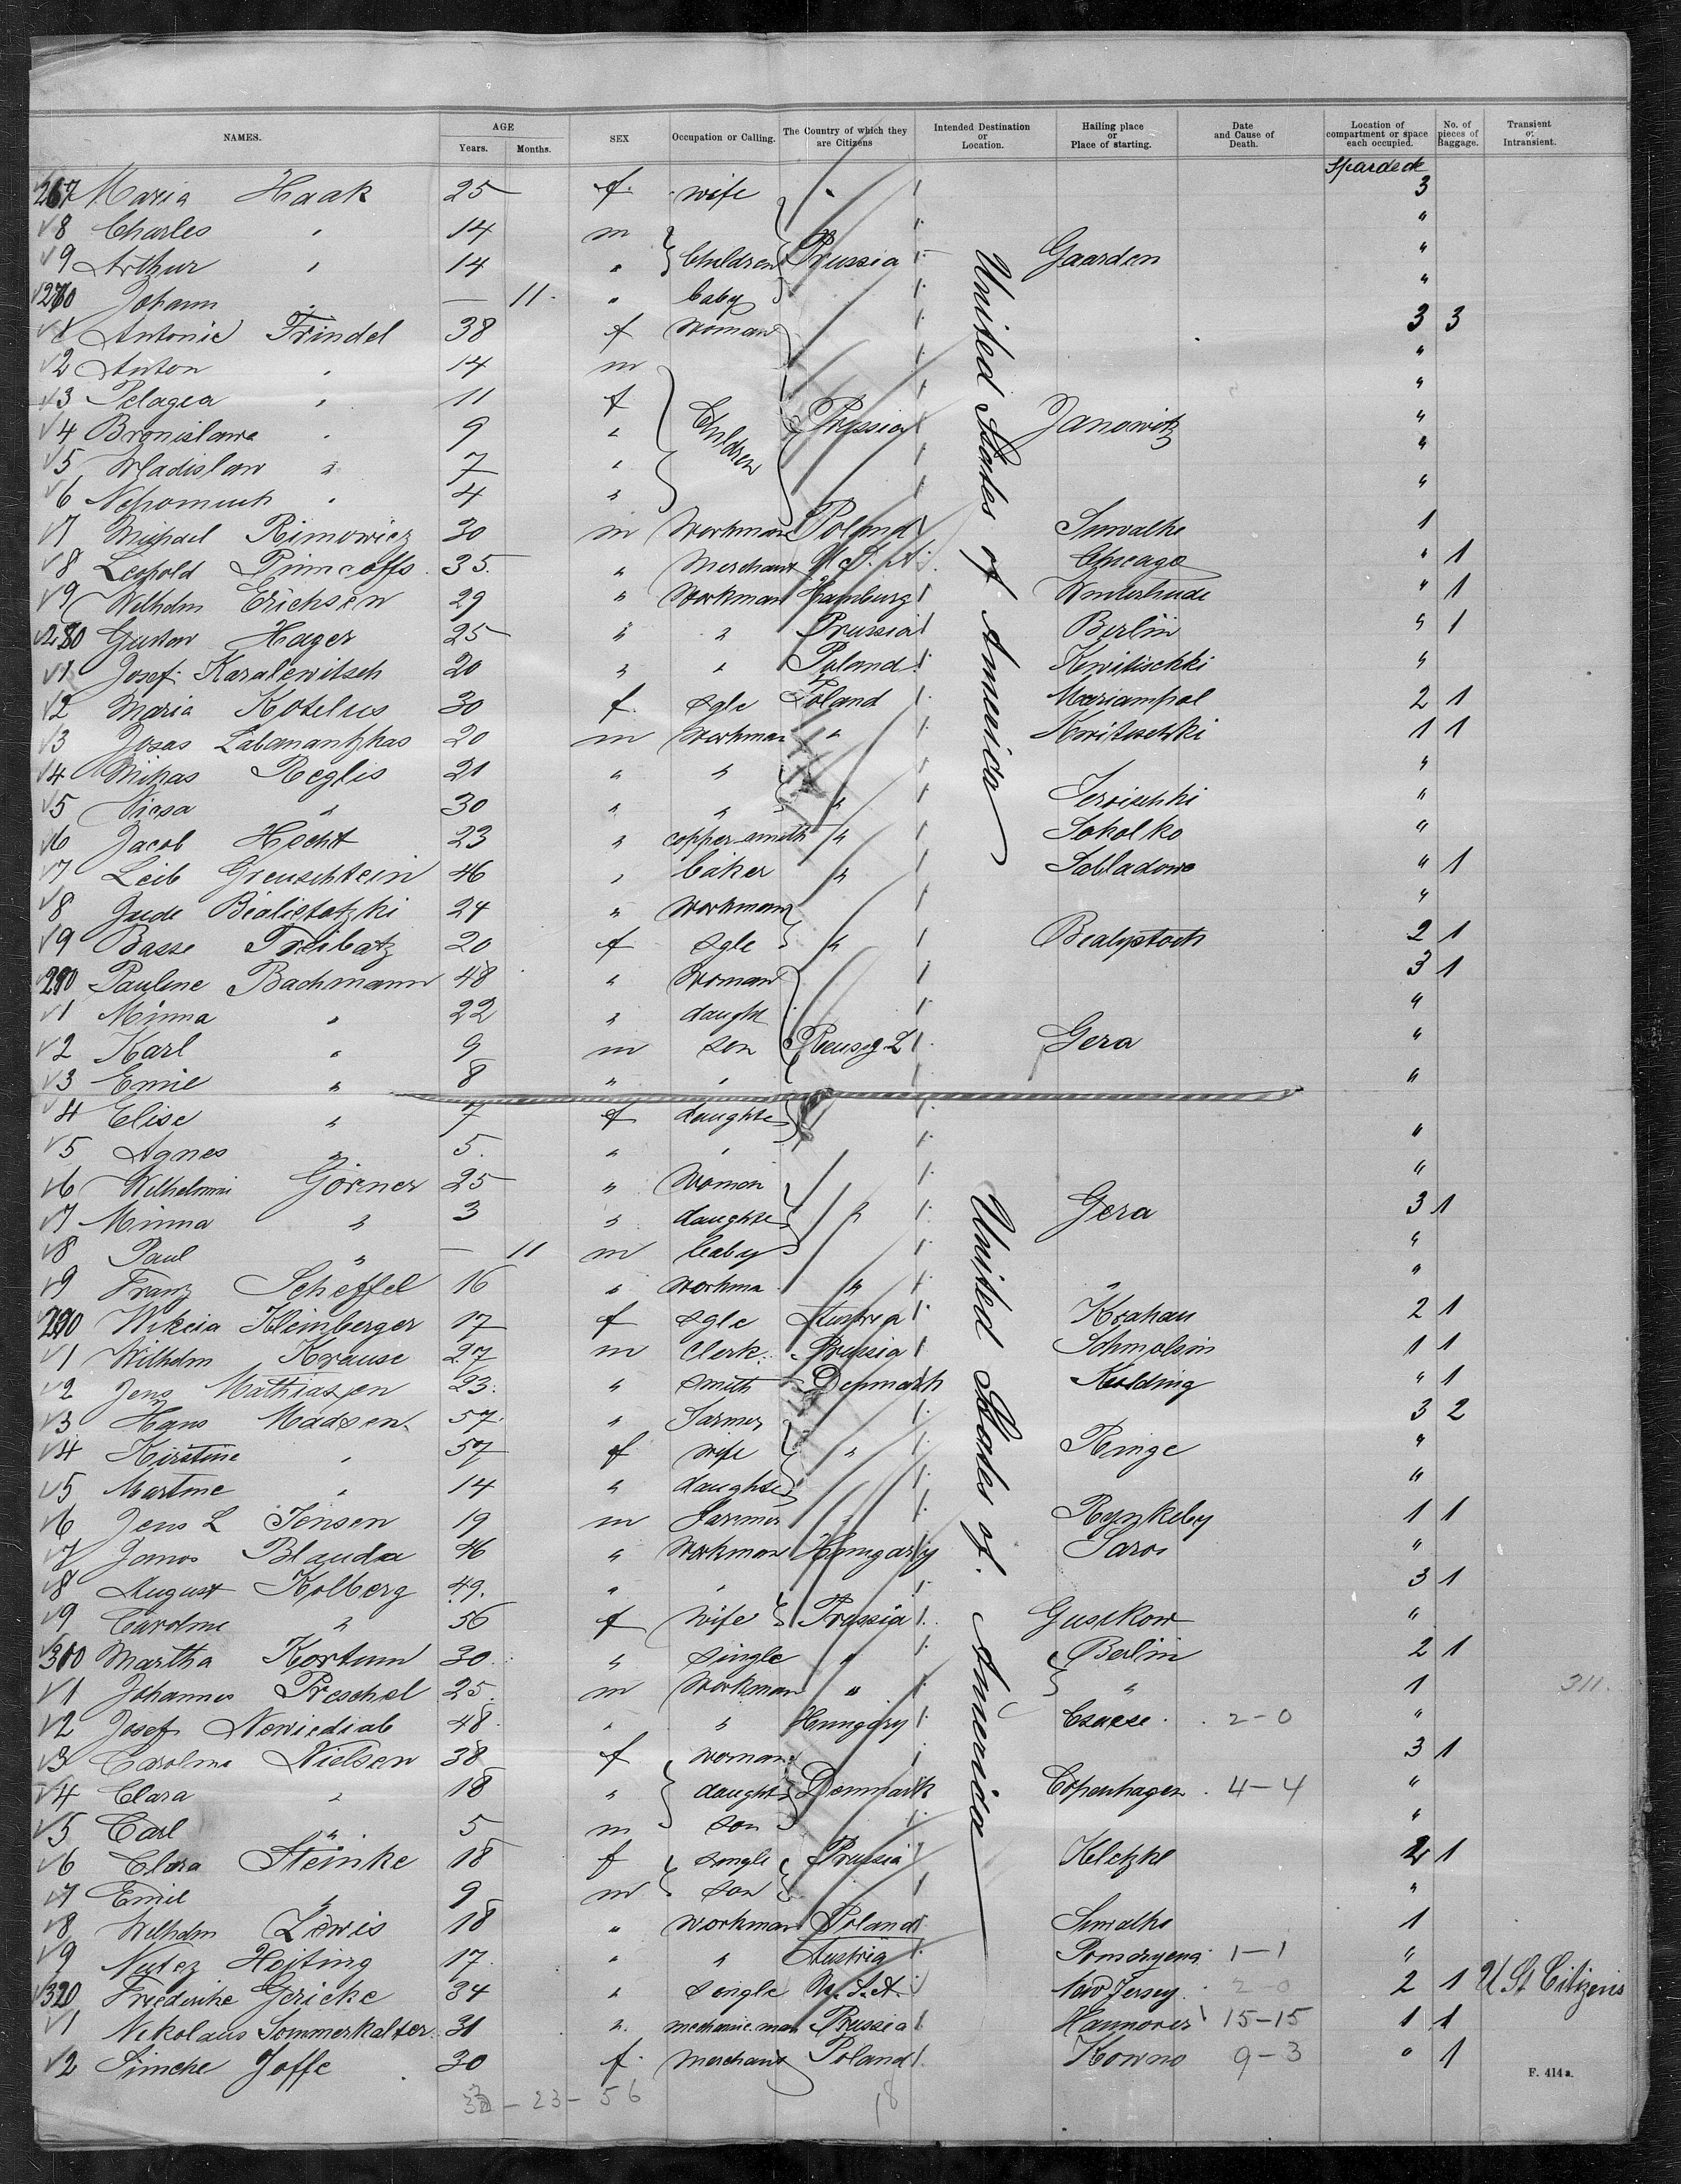 NAMES. AGE SEX Occupation or Calling. The Country of which they are Citizens Intended Destination or Location. Hailing place or Place of starting. Date and Cause of Death. Location of compartment or space each occupied. No. of pieces of Baggage. Transient or Intransient.
Years. Months.
Spardeck
267 Maria Haak 25 f. wife " 3
8 Charles " 14 m "
9 Arthur " 14 " Children Prussia Gaarden "
270 Johann " — 11. " baby "
1 Antonie Trindel 38 f woman 3 3
2 Anton " 14 m "
3 Pelagea " 11 f "
4 Bronislawa " 9 " Children Prussia Janowitz "
5 Wladislaw " 7 " "
6 Nepomuck " 4 " "
7 Michael Rimowicz 30 m Workman Poland Suwalke 1
8 Leopold 35. " Merchant U.S.A. Chicago " 1
9 Wilhelm Erichsen 29 " Workman Hamburg Winterhude " 1
280 Gustav Hager 25 " " Prussia Berlin " 1
1 Josef Karalewitsch 20 " " Poland "
2 Maria Kotelus 30 f. sgle Poland Mariampol 2 1
3 Josas Labanantzkas 20 m Workman " 1 1
4 Mikas Reglis 21 " " "
5 " 30 " " " "
6 Jacob Hecht 23 " coppersmith " Sokolko "
7 Leib 46 " baker " " 1
8 Jude 24 " Workman "
9 Basse 20 f sgle " Bealystock 2 1
290 Pauline Bachmann 48 " Woman 3 1
1 Minna " 22 " daught "
2 Karl " 9 m son Gera "
3 Emil " 8 " " "
4 Elise " 7 f daughte
5 Agnes " 5. " " "
6 Görner 25 " Woman "
7 Minna " 3 " daughte " Gera 3 1
8 Paul " — 11 m baby "
9 Franz Scheffel 16 " workma " " "
290 Kleinberger 17 f sgle Austria Krakau 2 1
1 Wilhelm Krause 27 m Clerk Prussia Schmolsin 1 1
2 Jens Mathiasen 23. " smith Denmark Kolding " 1
3 Hans Madsen 57. " Farmer 3 2
4 Kirstine " 57 f wife " Ringe "
5 Martine " 14 " daughte "
6 Jens L Jensen 19 m Farmer " Rynkeby 1 1
7 Janos Blauda 46 " Workman Hungary Saros "
8 August Kolberg 49. " " 3 1
9 Caroline " 56 f Wife Prussia Gustkow "
300 Martha Kortum 30. " single " Berlin 2 1
1 Johannes Preschel 25. m Workman " " 1 311.
2 Josef 48. " " Hungary 2-0 "
3 Caroline Nielsen 38 f woman 3 1
4 Clara " 18 " daught Denmark Copenhagen 4-4 "
5 Carl " 5 m son "
6 Clara Steinke 18 f single Prussia Kletzke 2 1
7 Emil " 9 m son "
8 Wilhelm Lewis 18 " workman Poland Suwalke 1
9 Hejting 17. " " Austria 1-1 "
320 Friederike Gericke 34 " single U.S.A. New Jersey 2 0 2 1 U St Citizens
1 Nikolaus Sommerkalter 31 " mechanic man Prussia Hannover 15-15 1 1
2 Simche Joffe 30 f. merchant Poland Kowno 9-3 " 1
United States of America
United States of America
33 - 23 - 56 18
F. 414a.